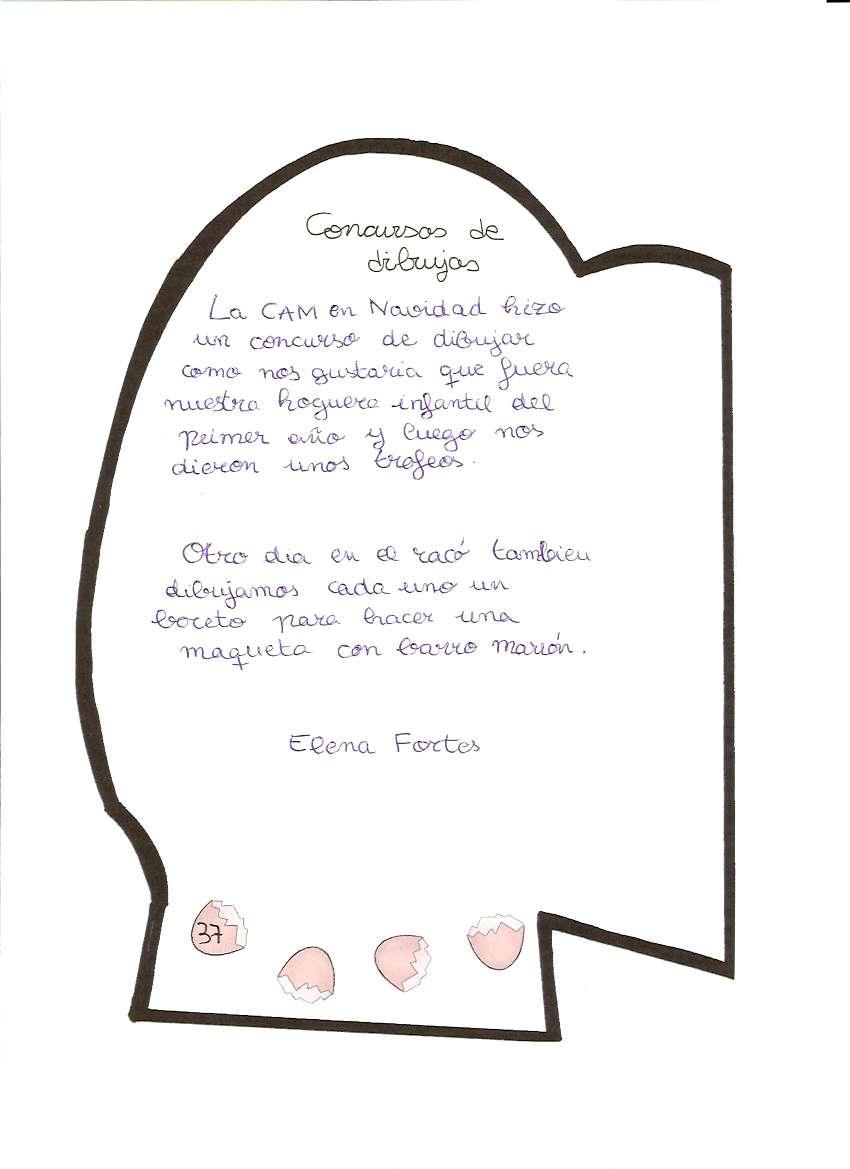 Concursos de
dibujos
La CAM en Navidad hizo
un concurso de dibujar
como nos gustaria que fuera
nuestra hoguera infantil del
primer año y luego nos
dieron unos trofeos.
Otro dia en el racó tambien
dibujamos cada uno un
boceto para hacer una
maqueta con barro marrón.
Elena Fortes
37